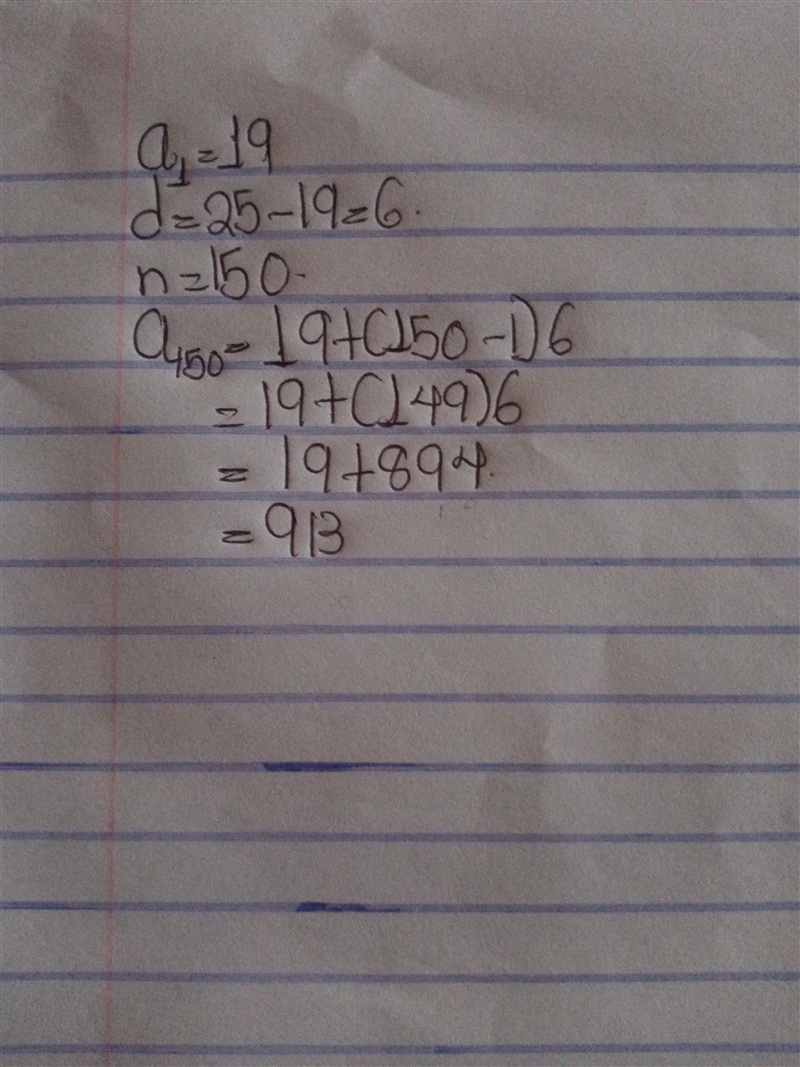 a₁=19
d=25-19=6.
n=150.
a₁₅₀= 19+(150-1)6
= 19+(149)6
= 19+894.
= 913